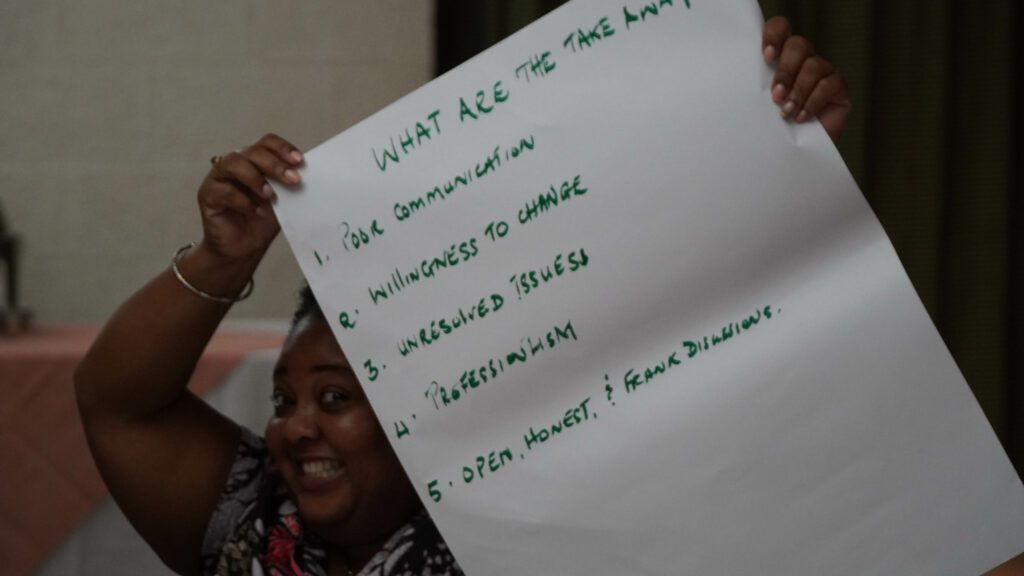 WHAT ARE THE TAKE AWAY
1. POOR COMMUNICATION
2. WILLINGNESS TO CHANGE
3. UNRESOLVED ISSUES
4. PROFESSIONALISM
5. OPEN, HONEST, & FRANK DISCUSSIONS.